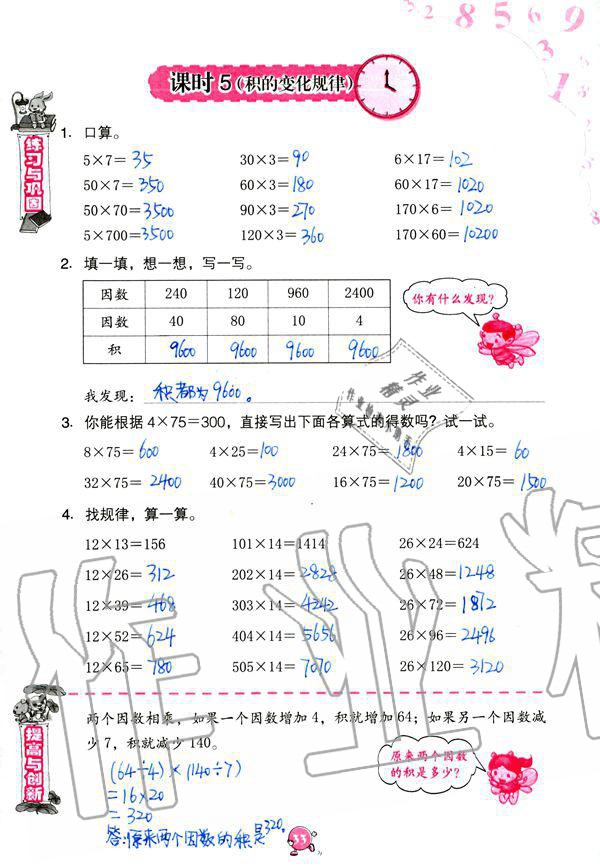 3 2 8 5 6 9
3
3
1
2
8
课时 5(积的变化规律)
练习与巩固
1. 口算。
5×7=35 30×3=90 6×17=102
50×7=350 60×3=180 60×17=1020
50×70=3500 90×3=270 170×6=1020
5×700=3500 120×3=360 170×60=10200
2. 填一填，想一想，写一写。
因数 240 120 960 2400
因数 40 80 10 4
积 9600 9600 9600 9600
你有什么发现?
我发现：积都为9600。
3. 你能根据 4×75=300，直接写出下面各算式的得数吗？试一试。
8×75=600 4×25=100 24×75=1800 4×15=60
32×75=2400 40×75=3000 16×75=1200 20×75=1500
4. 找规律，算一算。
12×13=156 101×14=1414 26×24=624
12×26=312 202×14=2828 26×48=1248
12×39=468 303×14=4242 26×72=1872
12×52=624 404×14=5656 26×96=2496
12×65=780 505×14=7070 26×120=3120
提高与创新
两个因数相乘，如果一个因数增加 4，积就增加 64；如果另一个因数减
少 7，积就减少 140。
原来两个因数
的积是多少?
(64÷4)×(140÷7)
=16×20
=320
答:原来两个因数的积是320。
33
作业精灵
作业